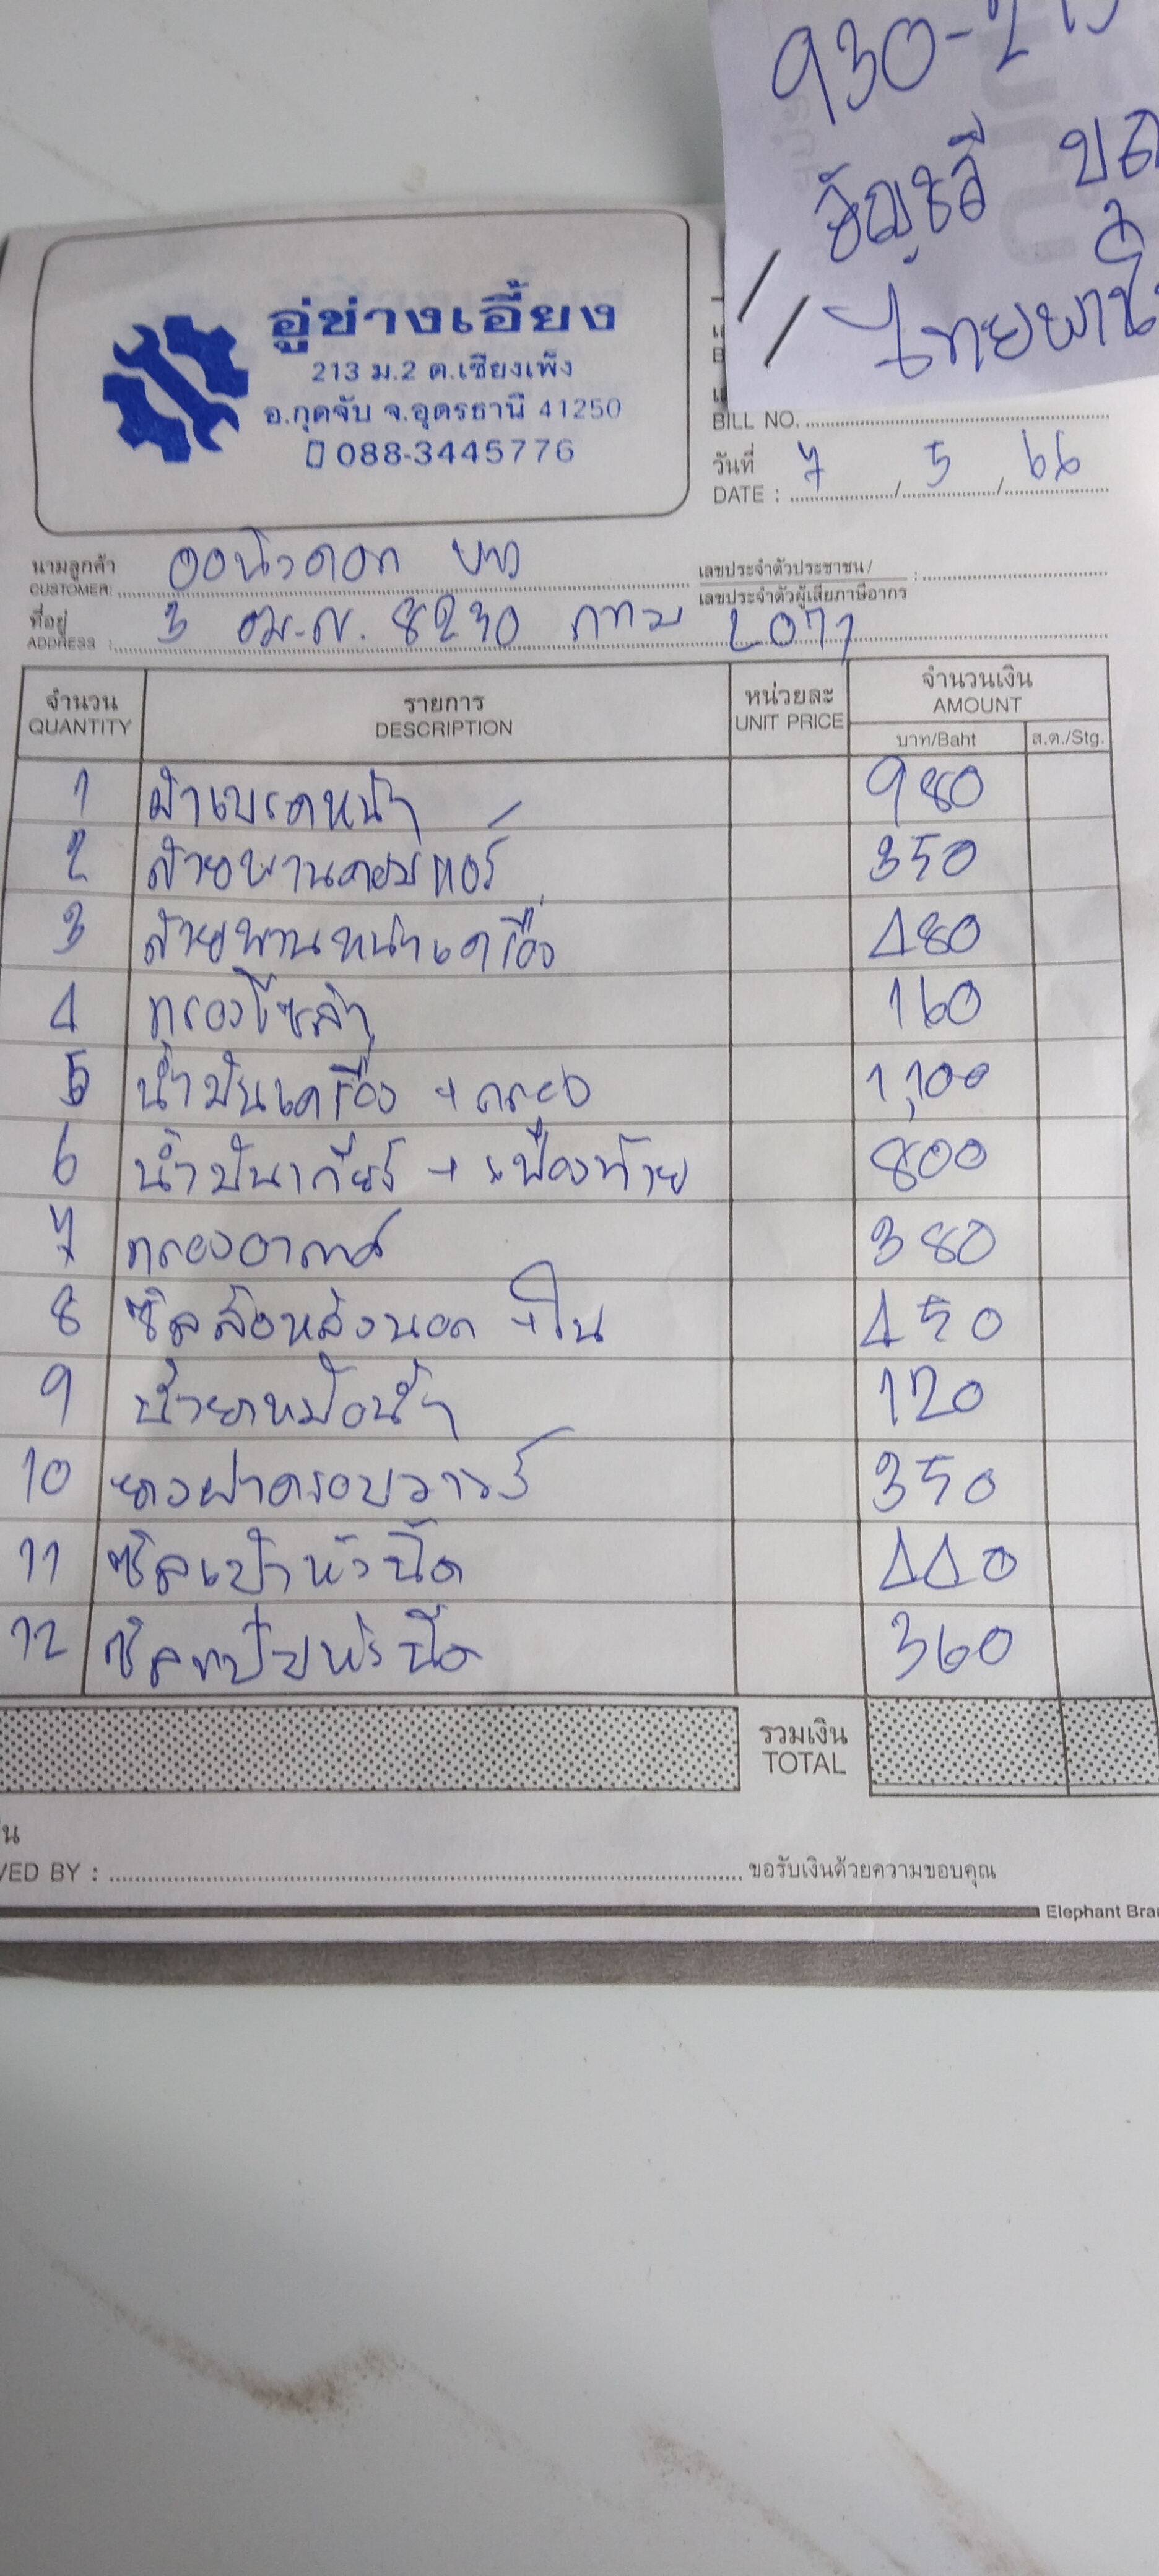 930-
ไทยพาณิ
อู่ช่างเอี้ยง
213 ม.2 ต.เชียงเพ็ง
อ.กุดจับ จ.อุดรธานี 41250
088-3445776
BILL NO.
วันที่
DATE : 7 / 5 / 66
นามลูกค้า
CUSTOMER:
เลขประจำตัวประชาชน /
เลขประจำตัวผู้เสียภาษีอากร :
ที่อยู่
ADDRESS : 3 8230 กทม 2077
จำนวน รายการ หน่วยละ จำนวนเงิน
QUANTITY DESCRIPTION UNIT PRICE AMOUNT
บาท/Baht ส.ต./Stg.
1 ผ้าเบรคหน้า 980
2 สายพานคอมแอร์ 350
3 สายพานหน้าเครื่อง 480
4 กรองโซล่า 160
5 น้ำมันเครื่อง + กรอง 1,100
6 น้ำมันเกียร์ + เฟืองท้าย 800
7 กรองอากาศ 380
8 ซิลล้อหลังนอก + ใน 450
9 น้ำยาหม้อน้ำ 120
10 ยางฝาครอบวาวร์ 350
11 ซิลเบ้าหัวฉีด 440
12 ซิลแป๊บหัวฉีด 360
รวมเงิน
TOTAL
VED BY : ขอรับเงินด้วยความขอบคุณ
Elephant Bra